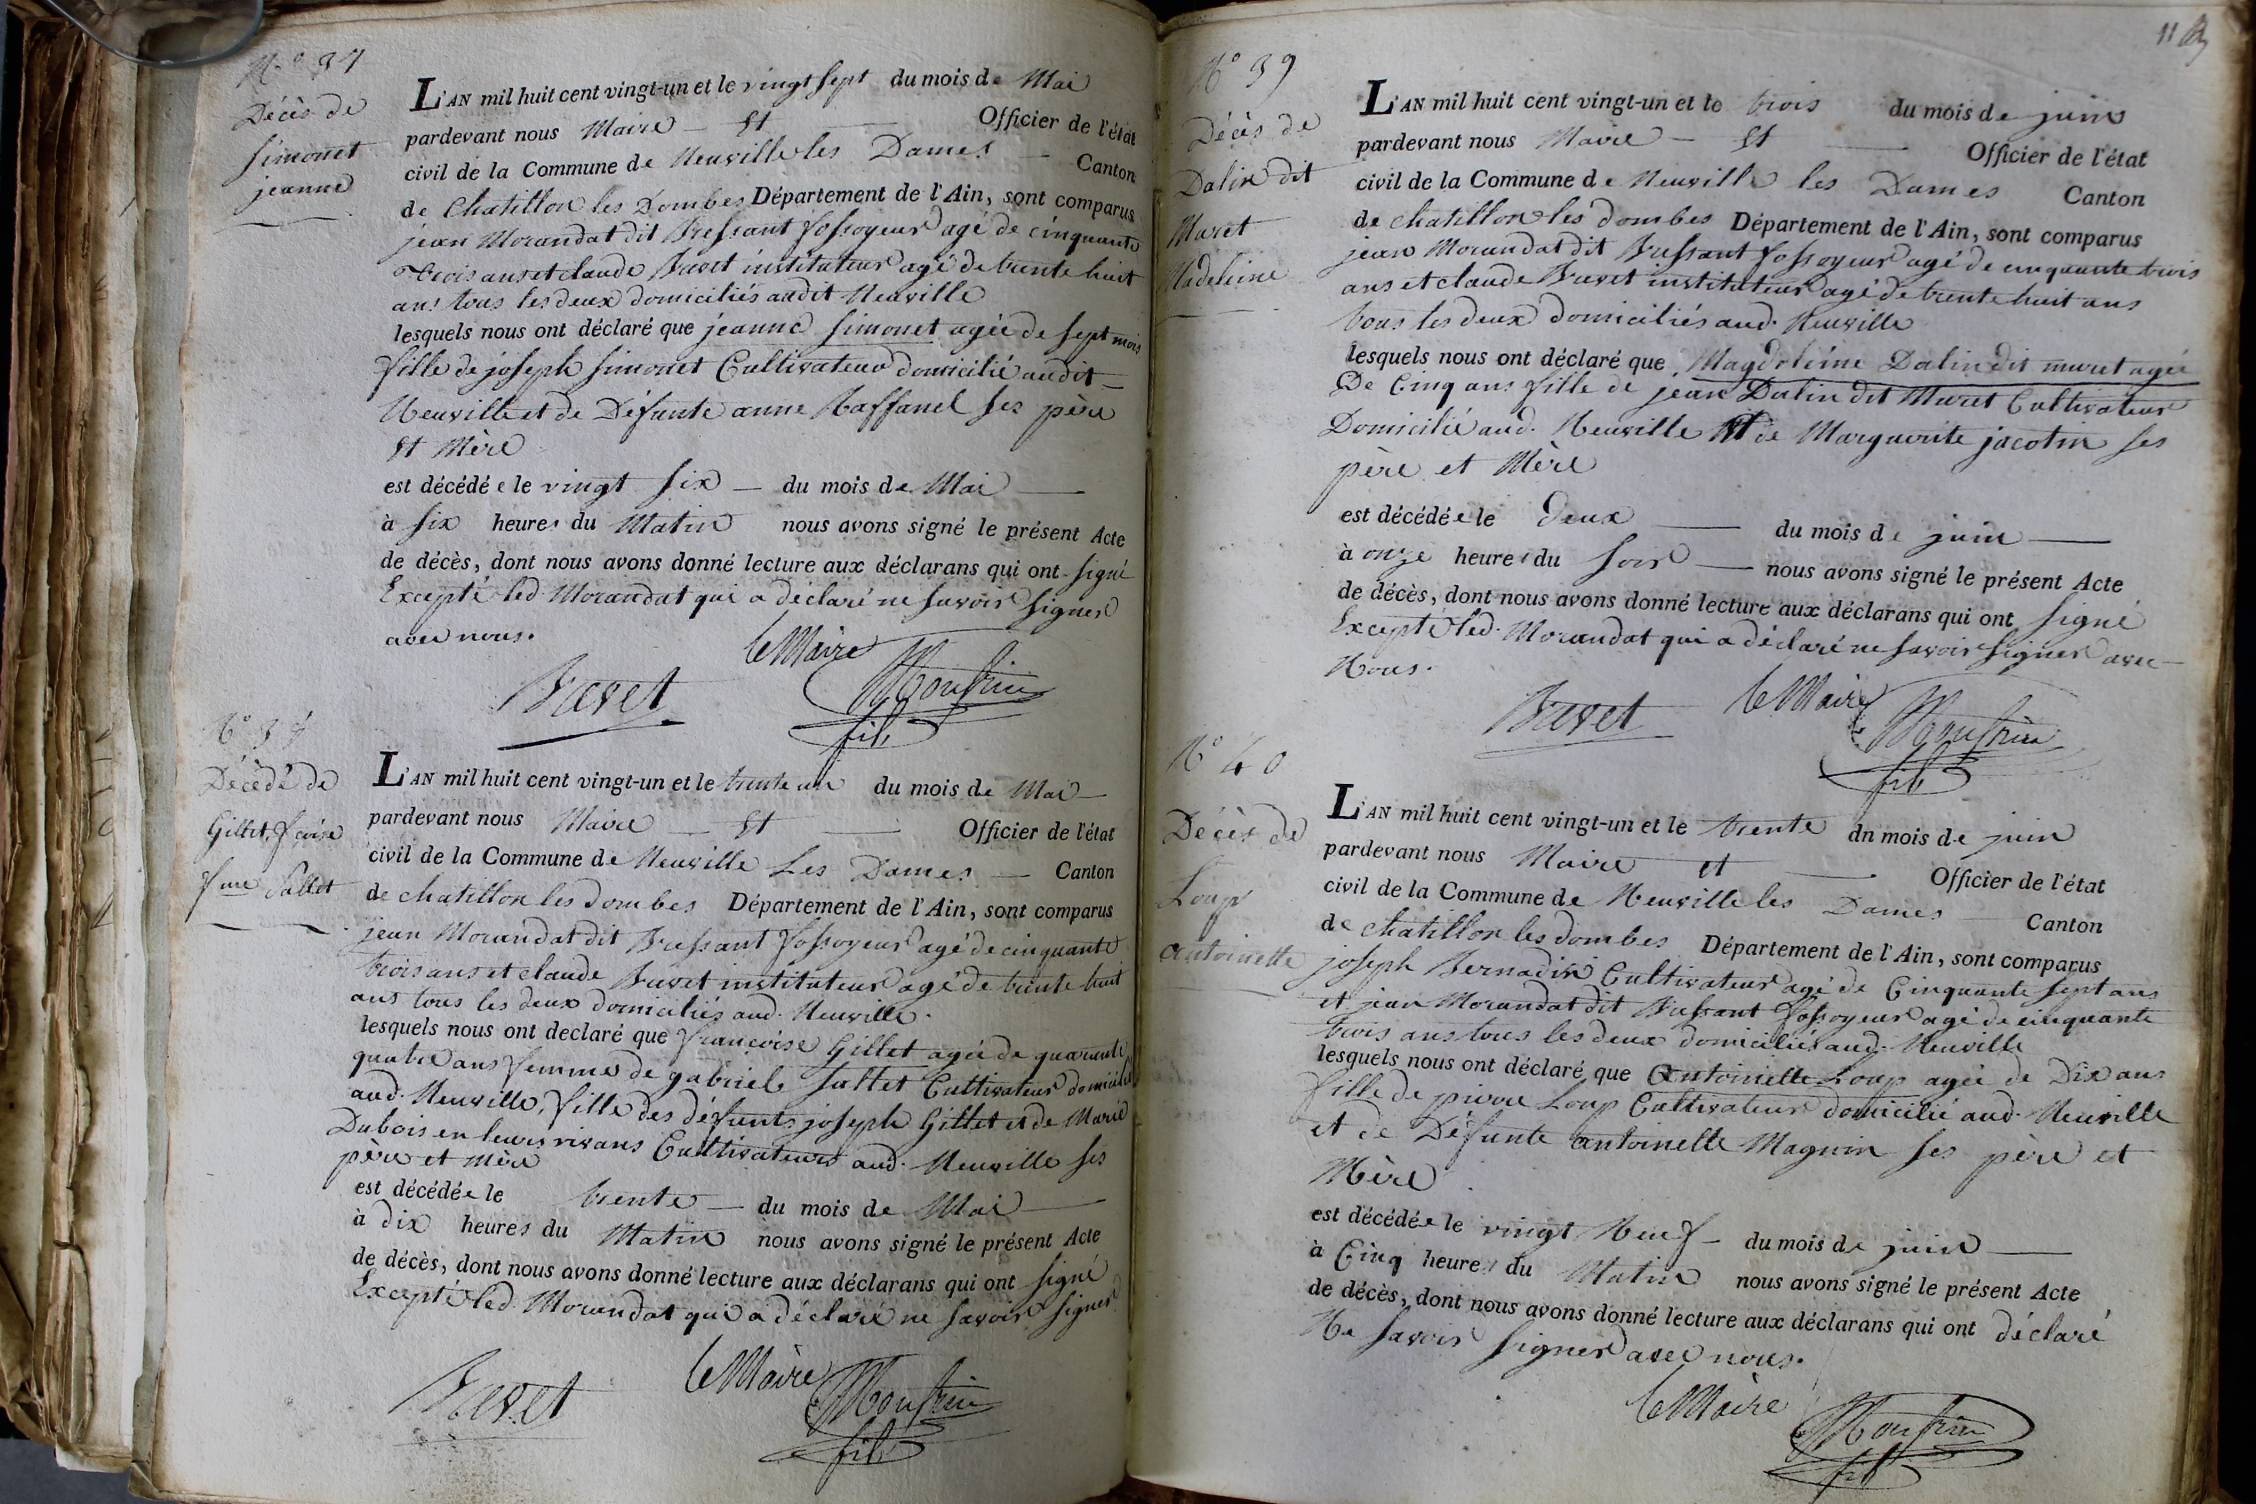 N.° 37
Décès de
Simonet
jeanne
L'AN mil huit cent vingt-un et le vingt sept du mois de Mai
pardevant nous Maire — et — Officier de l'état
civil de la Commune de Neuville les Dames — Canton
de Chatillon les Dombes Département de l'Ain, sont comparus
jean Morandat dit Bressant fossoyeur agé de cinquante
trois ans et claude Buvet instituteur agé de trente huit
ans tous les deux domiciliés audit Neuville
lesquels nous ont déclaré que jeanne Simonet agée de sept mois
fille de joseph Simonet Cultivateur domicilié audit
Neuville et de Défunte anne Raffanel ses père
et Mère
est décédée le vingt six — du mois de Mai —
à six heures du Matin nous avons signé le présent Acte
de décès, dont nous avons donné lecture aux déclarans qui ont signé
Excepté led. Morandat qui a déclaré ne savoir signer
avec nous.
le Maire
Buvet
fils
Décédé de
Gillet fcoise
fme Sallet
L'AN mil huit cent vingt-un et le trente un du mois de Mai
pardevant nous Maire — et — Officier de l'état
civil de la Commune de Neuville Les Dames — Canton
de chatillon les dombes Département de l'Ain, sont comparus
jean Morandat dit Bressant fossoyeur agé de cinquante
trois ans et claude Buvet instituteur agé de trente huit
ans tous les deux domiciliés aud. Neuville.
lesquels nous ont declaré que françoise Gillet agée de quarante
quatre ans femme de gabriel Sallet Cultivateur domicilié
aud. Neuville, fille des défunts joseph Gillet et de Marie
Dubois en leurs vivans Cultivateurs aud. Neuville ses
père et mère
est décédée le trente — du mois de Mai —
à dix heures du Matin nous avons signé le présent Acte
de décès, dont nous avons donné lecture aux déclarans qui ont signé
Excepté led. Morandat qui a déclaré ne savoir signer
le Maire
Buvet
fils
11
N° 39
Décès de
Dalin dit
Muret
Madeleine
L'AN mil huit cent vingt-un et le trois du mois de juin
pardevant nous Maire — et — Officier de l'état
civil de la Commune de Neuville les Dames Canton
de chatillon les dombes Département de l'Ain, sont comparus
jean Morandat dit Bressant fossoyeur agé de cinquante trois
ans et claude Buvet instituteur agé de trente huit ans
tous les deux domiciliés aud. Neuville
lesquels nous ont déclaré que Magdeleine Dalin dit muret agée
De Cinq ans fille de jean Dalin dit Muret Cultivateur
Domicilié aud. Neuville et de Marguerite jacotin ses
père et Mère
est décédée le Deux — du mois de juin —
à onze heures du soir — nous avons signé le présent Acte
de décès, dont nous avons donné lecture aux déclarans qui ont signé
Excepté led. Morandat qui a déclaré ne savoir signer avec
Nous.
le Maire
Buvet
fils
N° 40
Décès de
Loup
antoinette
L'AN mil huit cent vingt-un et le trente dn mois de juin
pardevant nous Maire et — Officier de l'état
civil de la Commune de Neuville les Dames Canton
de chatillon les dombes Département de l'Ain, sont comparus
joseph Bernadin Cultivateur agé de Cinquante sept ans
et jean Morandat dit Bressant fossoyeur agé de cinquante
trois ans tous les deux domiciliés aud. Neuville
lesquels nous ont déclaré que Antoinette Loup agée de Dix ans
fille de pierre Loup Cultivateur domicilié aud. Neuville
et de Défunte antoinette Magnin ses père et
Mère
est décédée le vingt Neuf — du mois de juin —
à Cinq heures du Matin nous avons signé le présent Acte
de décès, dont nous avons donné lecture aux déclarans qui ont déclaré
Ne savoir signer avec nous.
le Maire
fils